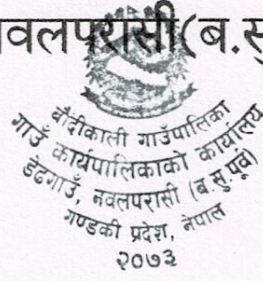 नवलपरासी(ब.सु
बौदीकाली गाउँपालिका
गाउँ कार्यपालिकाको कार्यालय
डेढगाउँ, नवलपरासी (ब.सु.पूर्व)
गण्डकी प्रदेश, नेपाल
२०७३